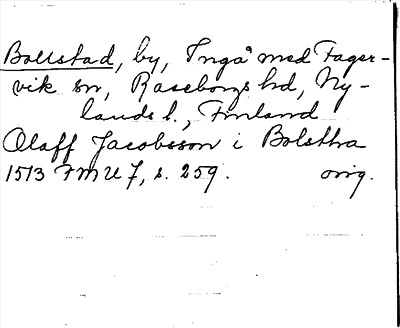 Bollstad, by, Ingå med Fager-
vik sn, Raseborgs hd, Ny-
lands l., Finland
Olaff Jacobsson i Bolstha
1513 FMU 7, s. 259. orig.